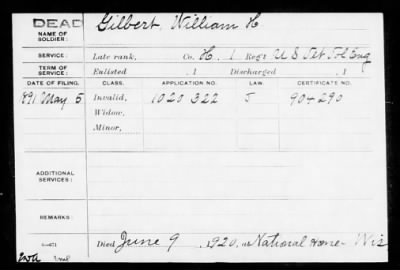 DEAD Gilbert, William H
NAME OF SOLDIER:
SERVICE: Late rank, Co. H. 1 Reg't U S Vet Vol Eng
TERM OF SERVICE: Enlisted , 1 Discharged , 1
DATE OF FILING. CLASS. APPLICATION NO. LAW. CERTIFICATE NO.
1891 May 5 Invalid, 1020 322 J 904290
Widow,
Minor,
ADDITIONAL SERVICES:
REMARKS:
Died June 9, 1920, at National Home - Wis